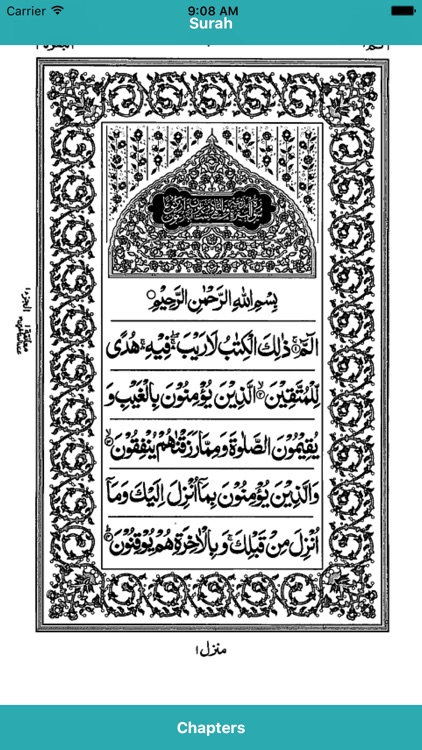 Carrier 9:08 AM
Surah
بِسْمِ اللهِ الرَّحْمٰنِ الرَّحِيْمِ
الٓمّٓ ۚ ذٰلِكَ الْكِتٰبُ لَا رَيْبَ ۛ فِيْهِ ۛ هُدًى
لِّلْمُتَّقِيْنَ ۙ الَّذِيْنَ يُؤْمِنُوْنَ بِالْغَيْبِ وَ
يُقِيْمُوْنَ الصَّلٰوةَ وَمِمَّا رَزَقْنٰهُمْ يُنْفِقُوْنَ ۙ
وَالَّذِيْنَ يُؤْمِنُوْنَ بِمَآ اُنْزِلَ اِلَيْكَ وَمَآ
اُنْزِلَ مِنْ قَبْلِكَ ۚ وَبِالْاٰخِرَةِ هُمْ يُوْقِنُوْنَ ؕ
منزل ۱
Chapters